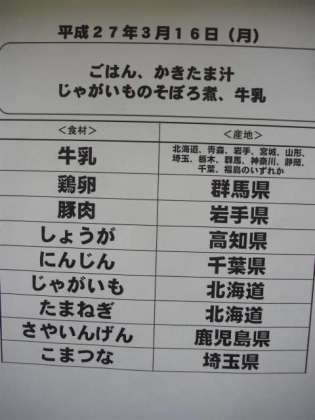 平成27年3月16日（月）
ごはん、かきたま汁
じゃがいものそぼろ煮、牛乳
＜食材＞ ＜産地＞
牛乳 北海道、青森、岩手、宮城、山形、
埼玉、栃木、群馬、神奈川、静岡、
千葉、福島のいずれか
鶏卵 群馬県
豚肉 岩手県
しょうが 高知県
にんじん 千葉県
じゃがいも 北海道
たまねぎ 北海道
さやいんげん 鹿児島県
こまつな 埼玉県